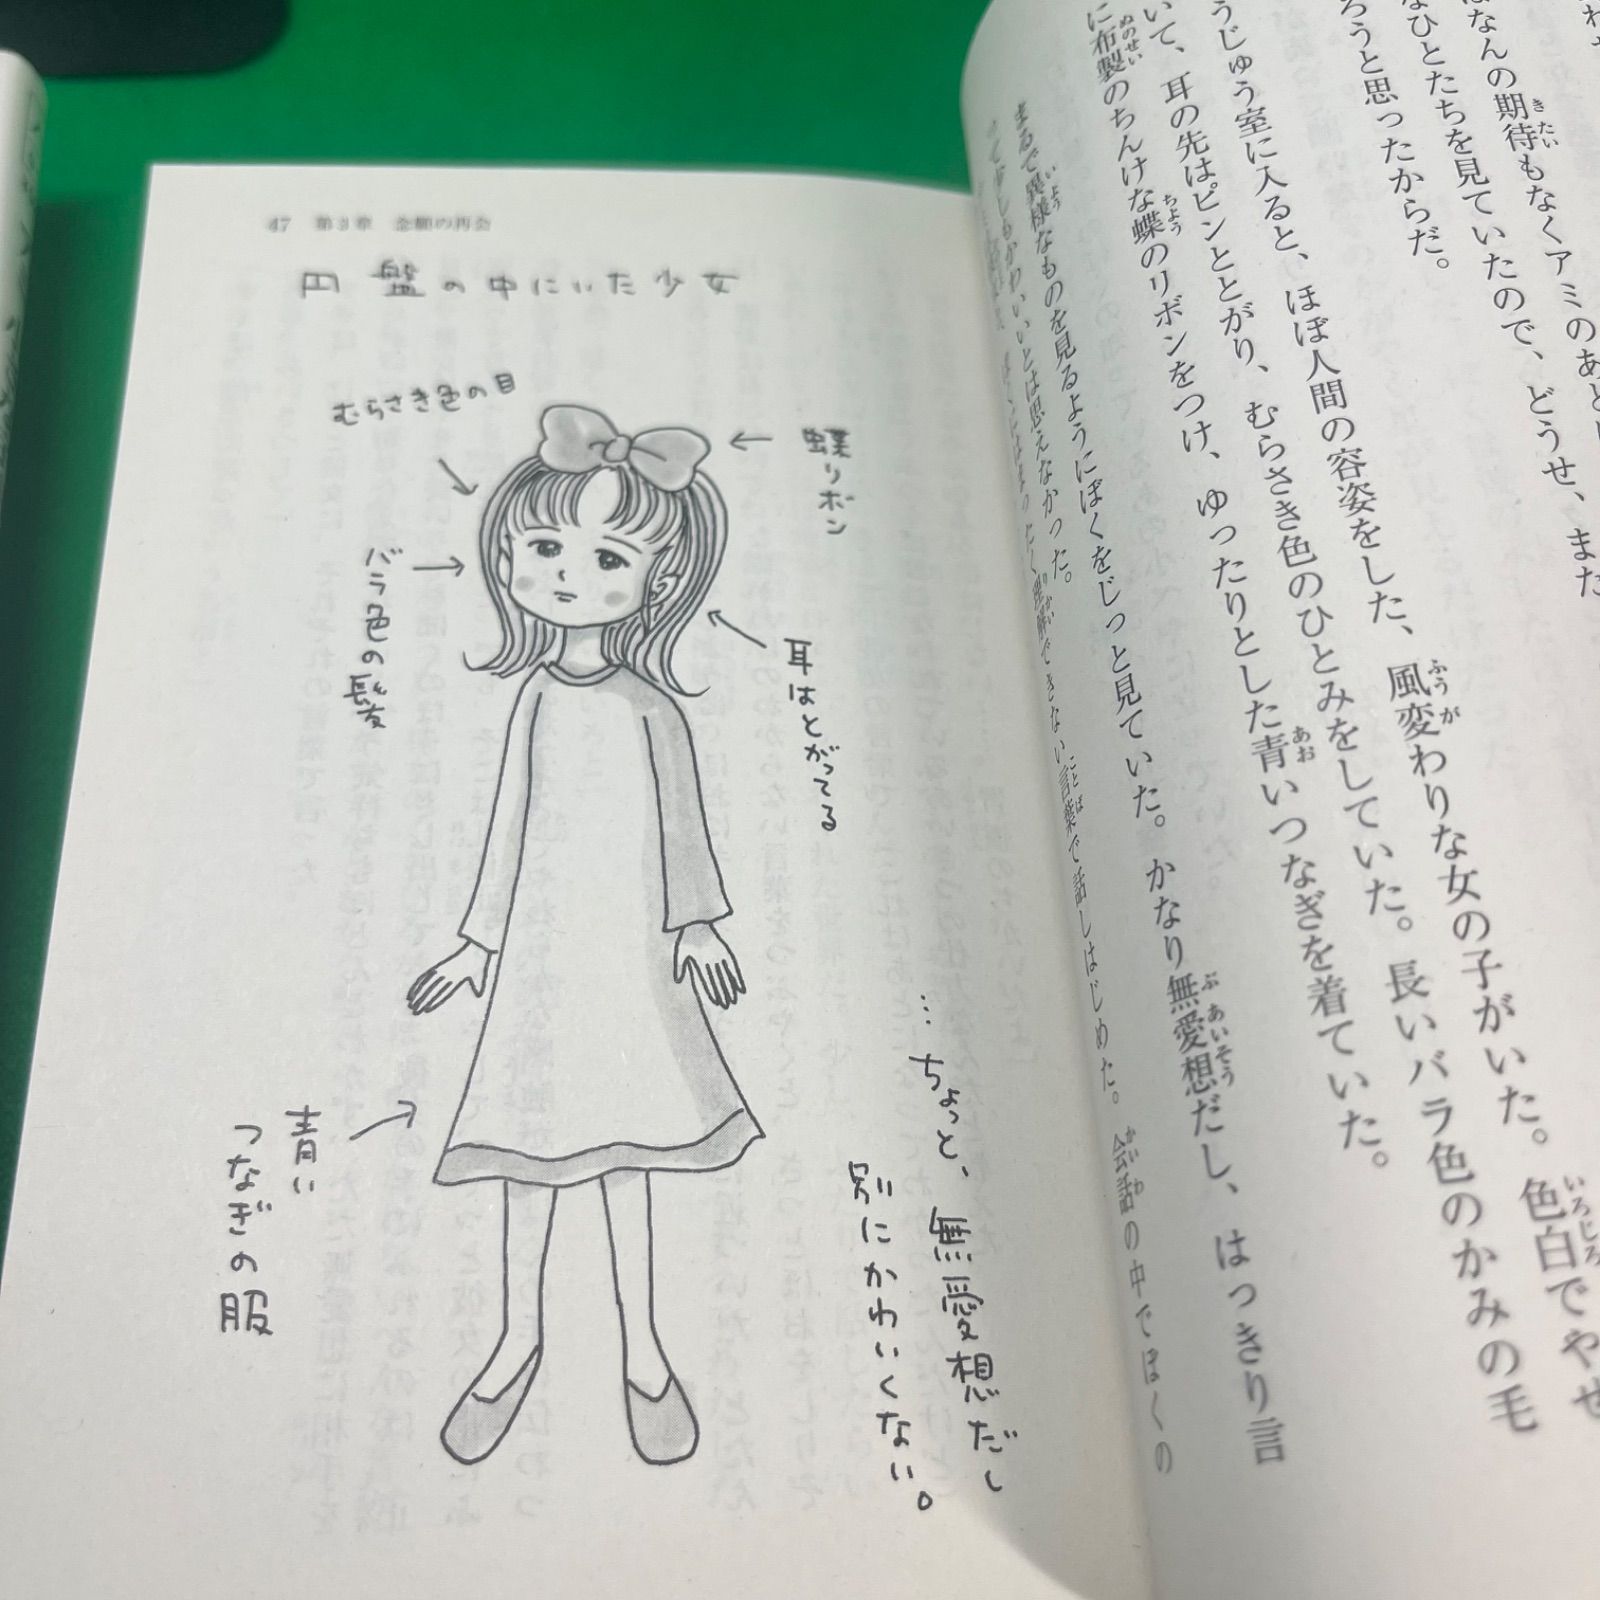 はなんの期待もなくアミのあと
なひとたちを見ていたので、どうせ、また
ろうと思ったからだ。
うじゅう室に入ると、ほぼ人間の容姿をした、風変わりな女の子がいた。色白でやせ
いて、耳の先はピンととがり、むらさき色のひとみをしていた。長いバラ色のかみの毛
に布製のちんけな蝶のリボンをつけ、ゆったりとした青いつなぎを着ていた。
まるで異様なものを見るようにぼくをじっと見ていた。かなり無愛想だし、はっきり言
って少しもかわいいとは思えなかった。
理解できない言葉で話しはじめた。会話の中でぼくの
47 第3章 念願の再会
円盤の中にいた少女
むらさき色の目
蝶リボン
バラ色の髪
耳はとがってる
青い
つなぎの服
…ちょっと、無愛想だし
別にかわいくない。